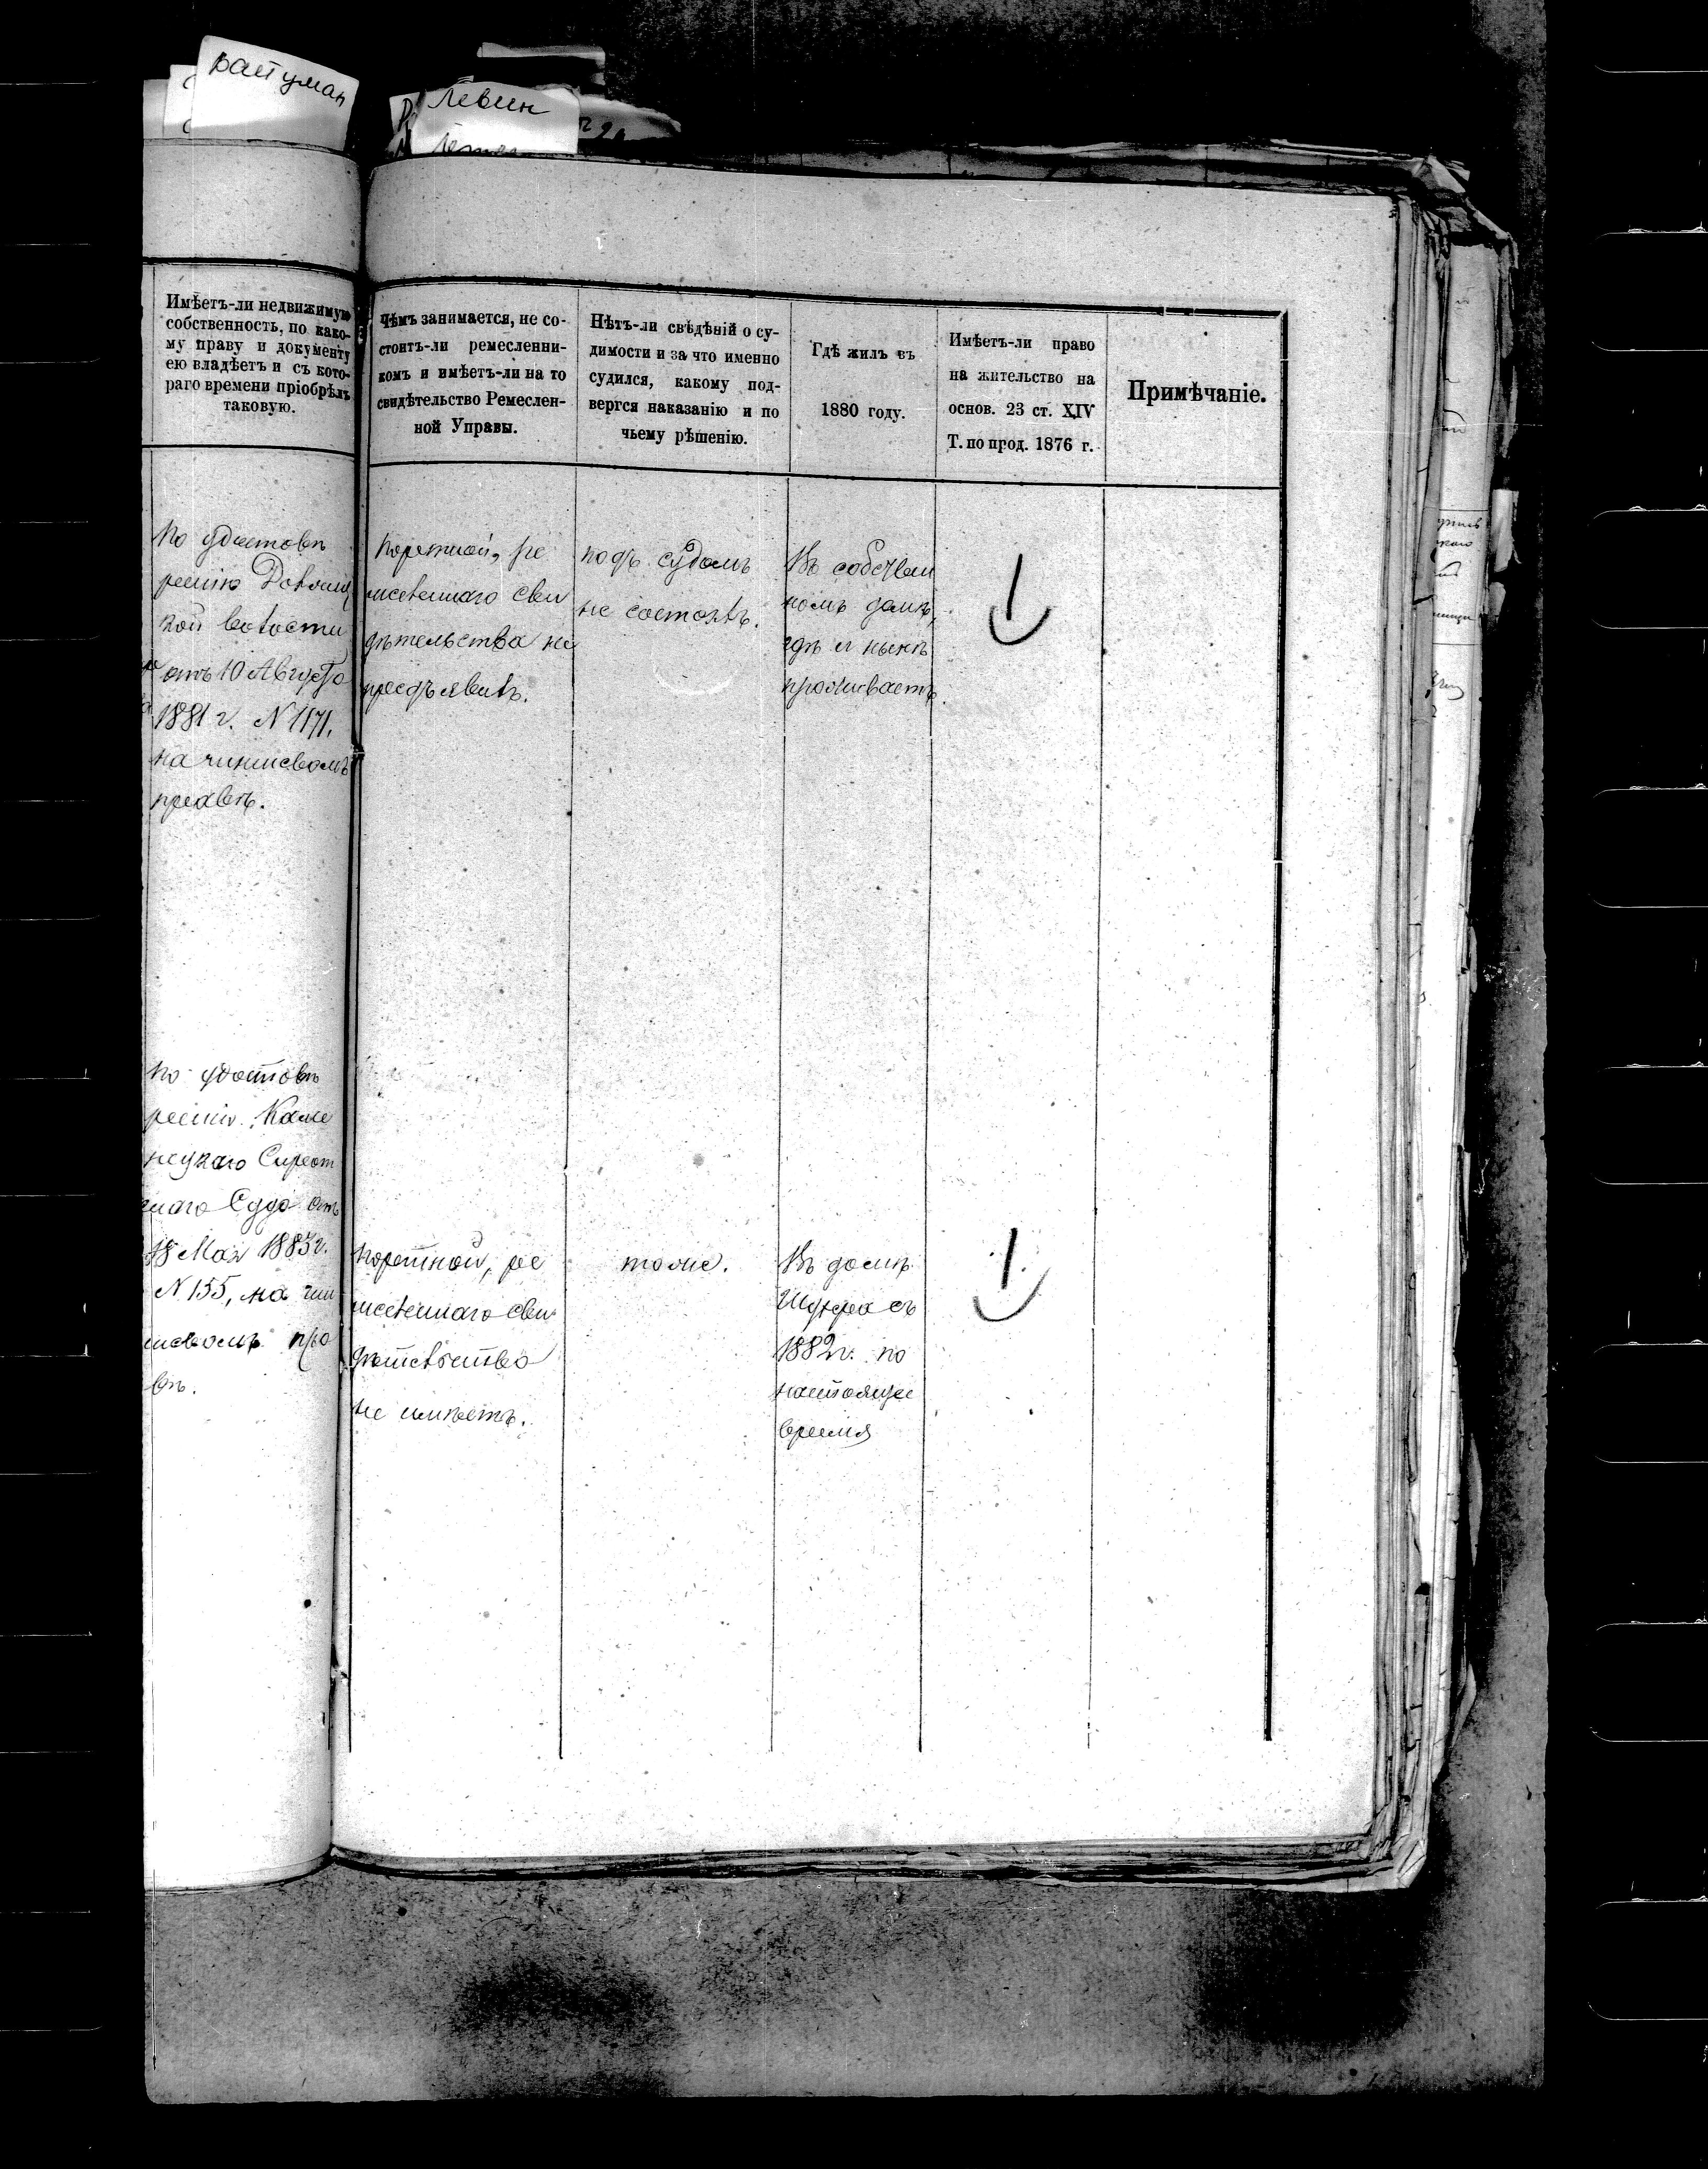 Левин
Имѣетъ-ли недвижимую
собственность, по како-
му праву и документу
ею владѣетъ и съ кото-
раго времени пріобрѣлъ
таковую.
Чѣмъ занимается, не со-
стоитъ-ли ремесленни-
комъ и имѣетъ-ли на то
свидѣтельство Ремеслен-
ной Управы.
Нѣтъ-ли свѣдѣній о су-
димости и за что именно
судился, какому под-
вергся наказанію и по
чьему рѣшенію.
Гдѣ жилъ въ
1880 году.
Имѣетъ-ли право
на жительство на
основ. 23 ст. XIV
Т. по прод. 1876 г.
Примѣчаніе.
По удостовѣ
ренію
кой волости
отъ 10 Августа
1881 г. N 1171.
на чиншевомъ
правѣ.
Портной, ре
месленнаго сви
дѣтельства не
предъявилъ.
подъ судомъ
не состоялъ.
Въ собствен
номъ домѣ,
гдѣ и нынѣ
проживаетъ.
По удостовѣ
ренію Каме
нецкаго Сирот
скаго Суда отъ
18 Мая 1883 г.
N 155, на чин
шевомъ пра
вѣ.
Портной, ре
месленнаго сви
дѣтельства
не имѣетъ.
тоже.
Въ домѣ
съ
1882 г. по
настоящее
время